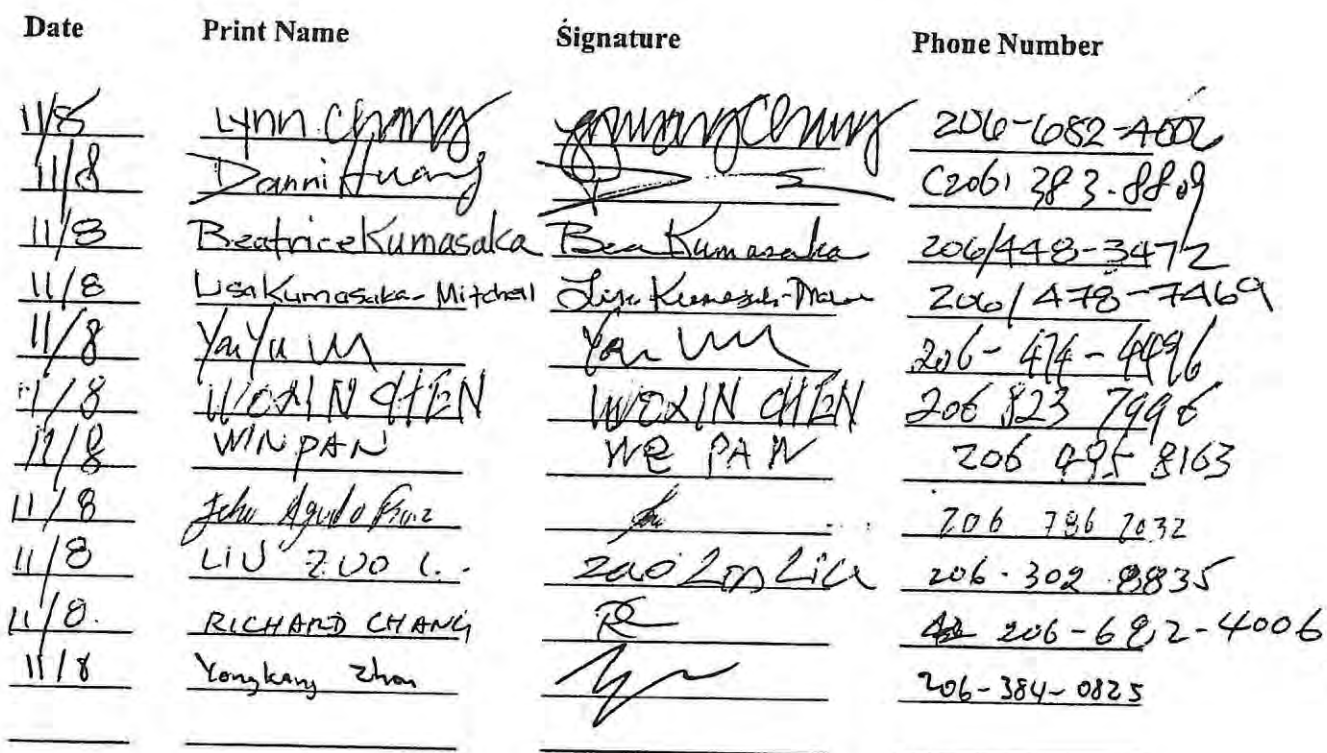 Date Print Name Signature Phone Number
11/8 Lynn Chang Chang 206-682-4006
11/8 Danni Huang (206) 383-8809
11/8 Beatrice Kumasaka Bea Kumasaka 206/448-3472
11/8 Lisa Kumasaka-Mitchell Lisa 206/478-7469
11/8 Yan Yu Yan 206-474-4496
11/8 WOXIN CHEN WOXIN CHEN 206 823 7996
11/8 WIN PAN WE PAN 206 8163
11/8 206 7032
11/8 LIU ZUO L.. 206-302 8835
11/8. RICHARD CHANG RC 206-682-4006
11/8 Yongkang Zhou 206-384-0825